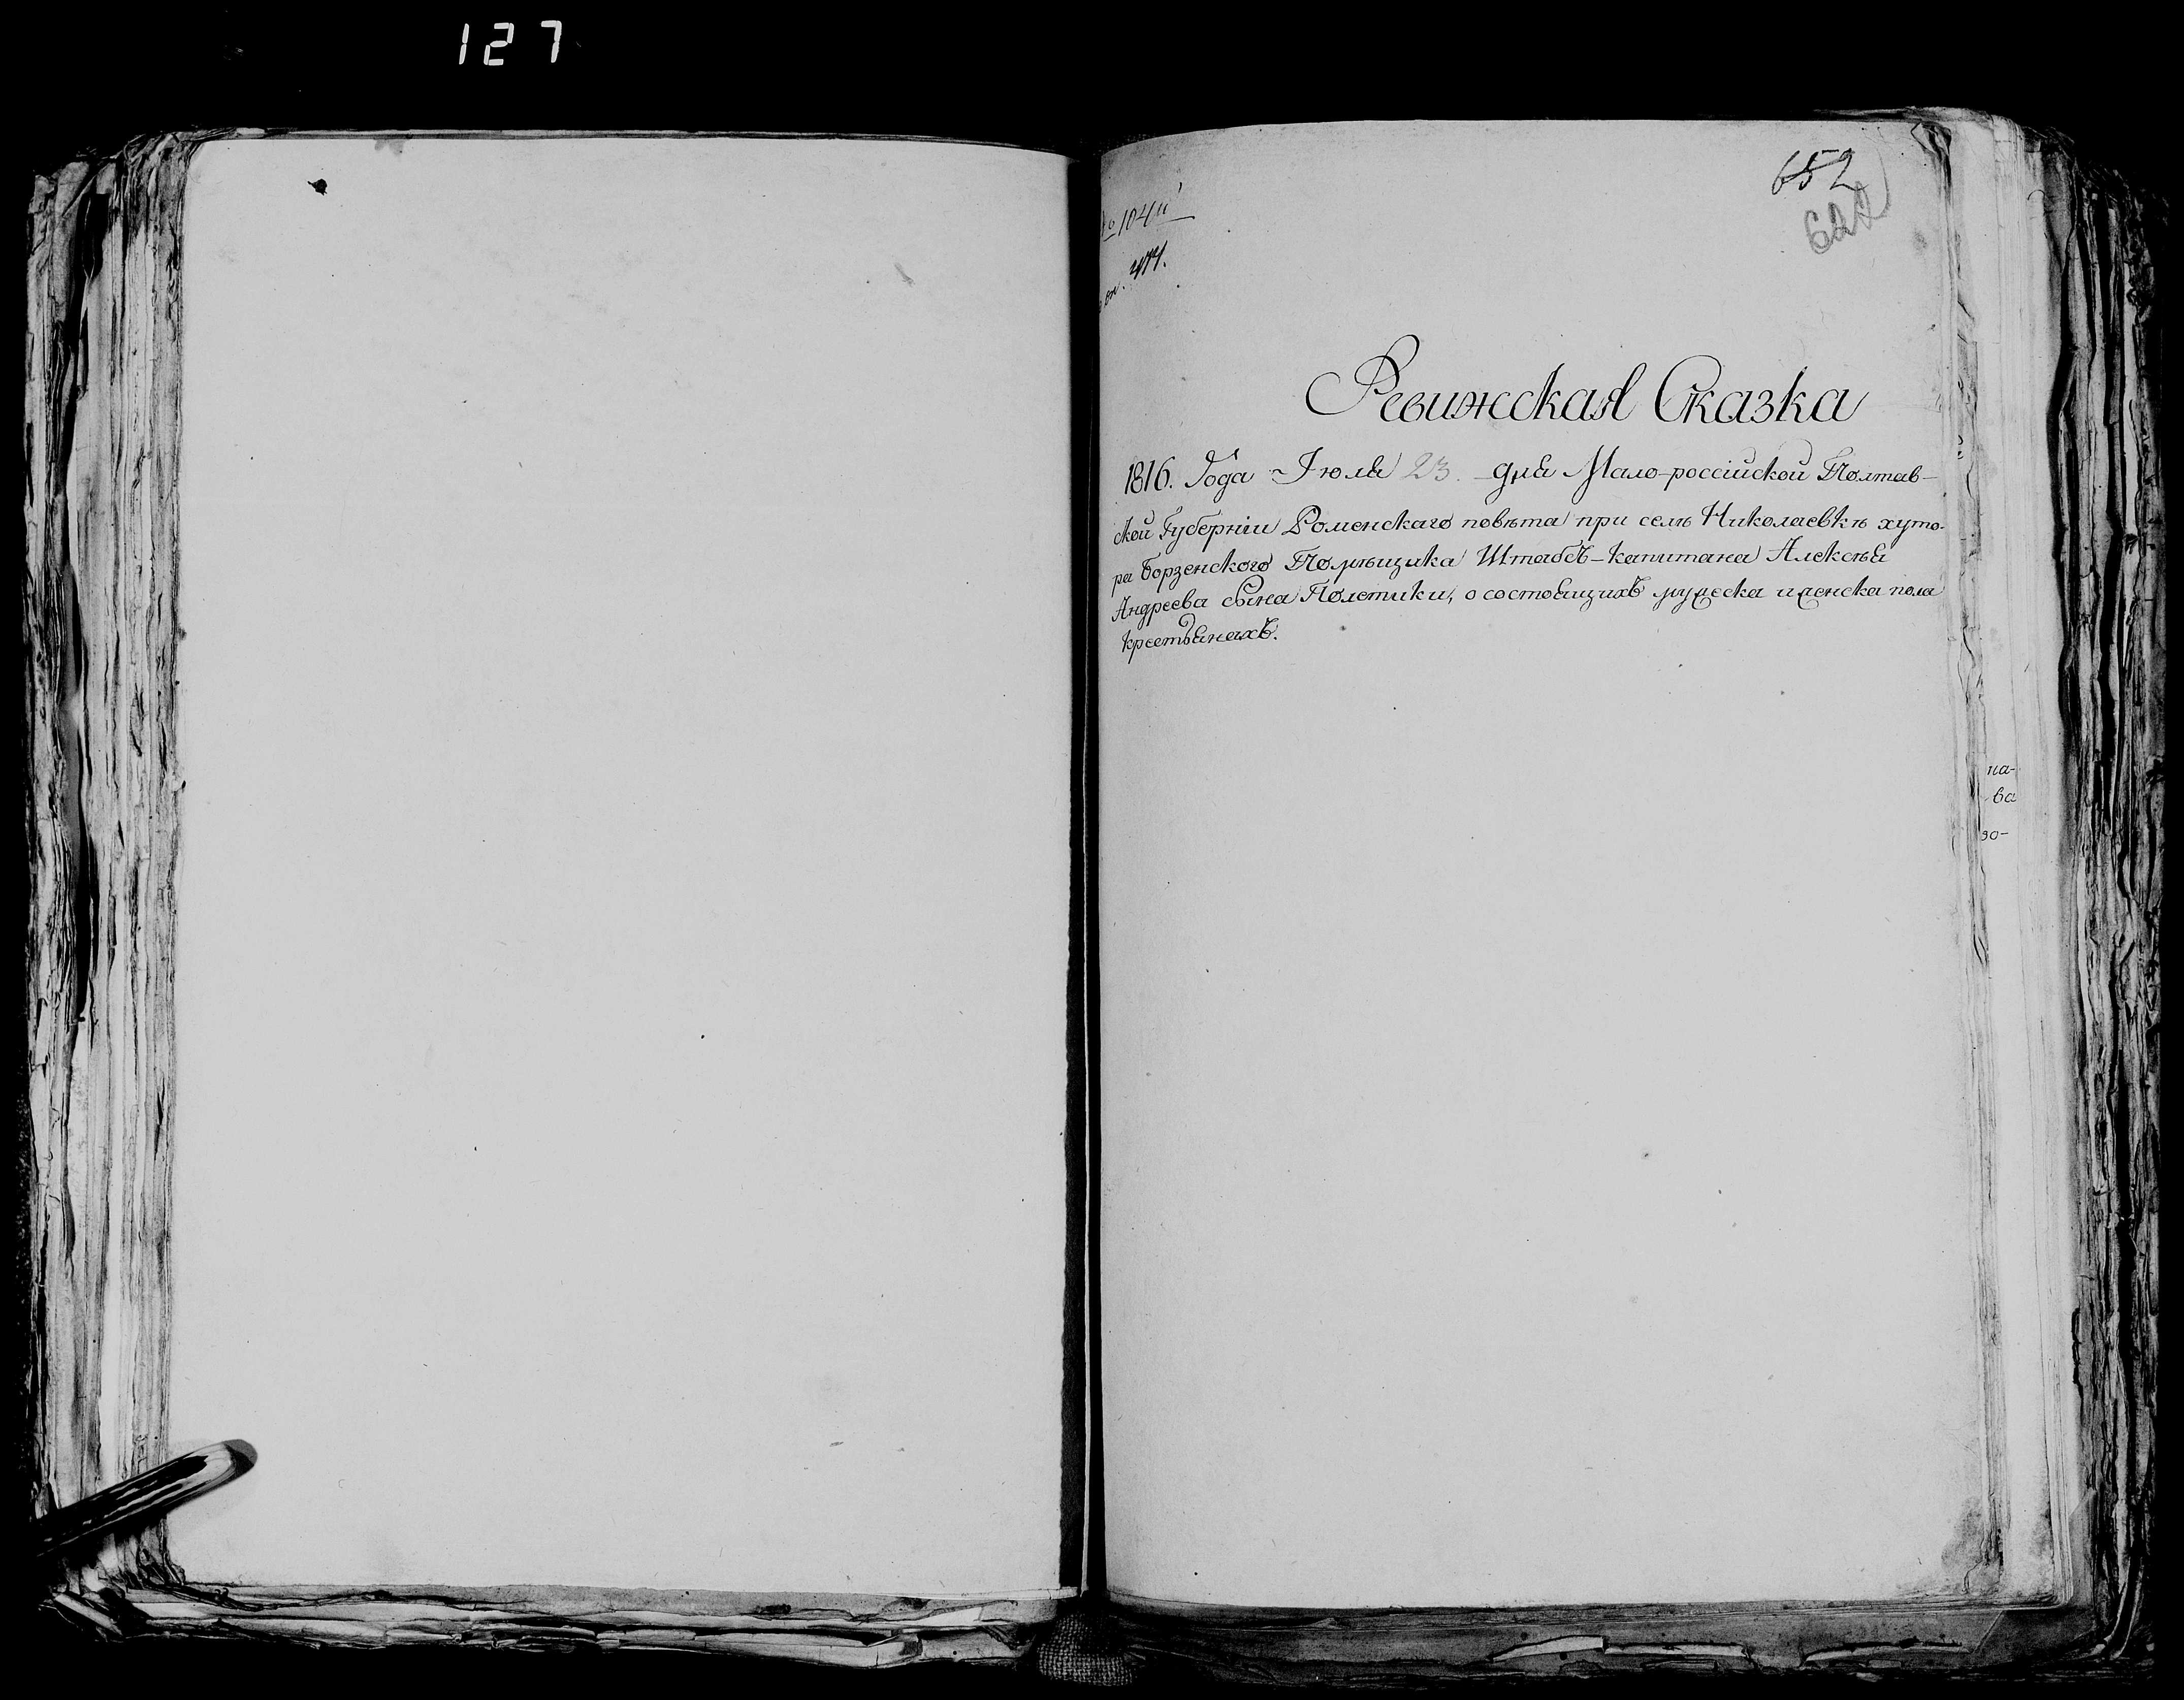 127
652
622
№ 104й
Ревижская Сказка
1816. Года Июля 23. дня Мало-россійской Полтав-
ской Губерніи Роменскаго повѣта при селѣ Николаевкѣ хуто-
ра Борзенского Помѣщика Штабсъ-капитана Алексѣя
Андреева сына Полетики, о состоящихъ мужеска и женска пола
крестьянахъ.
на-
ва